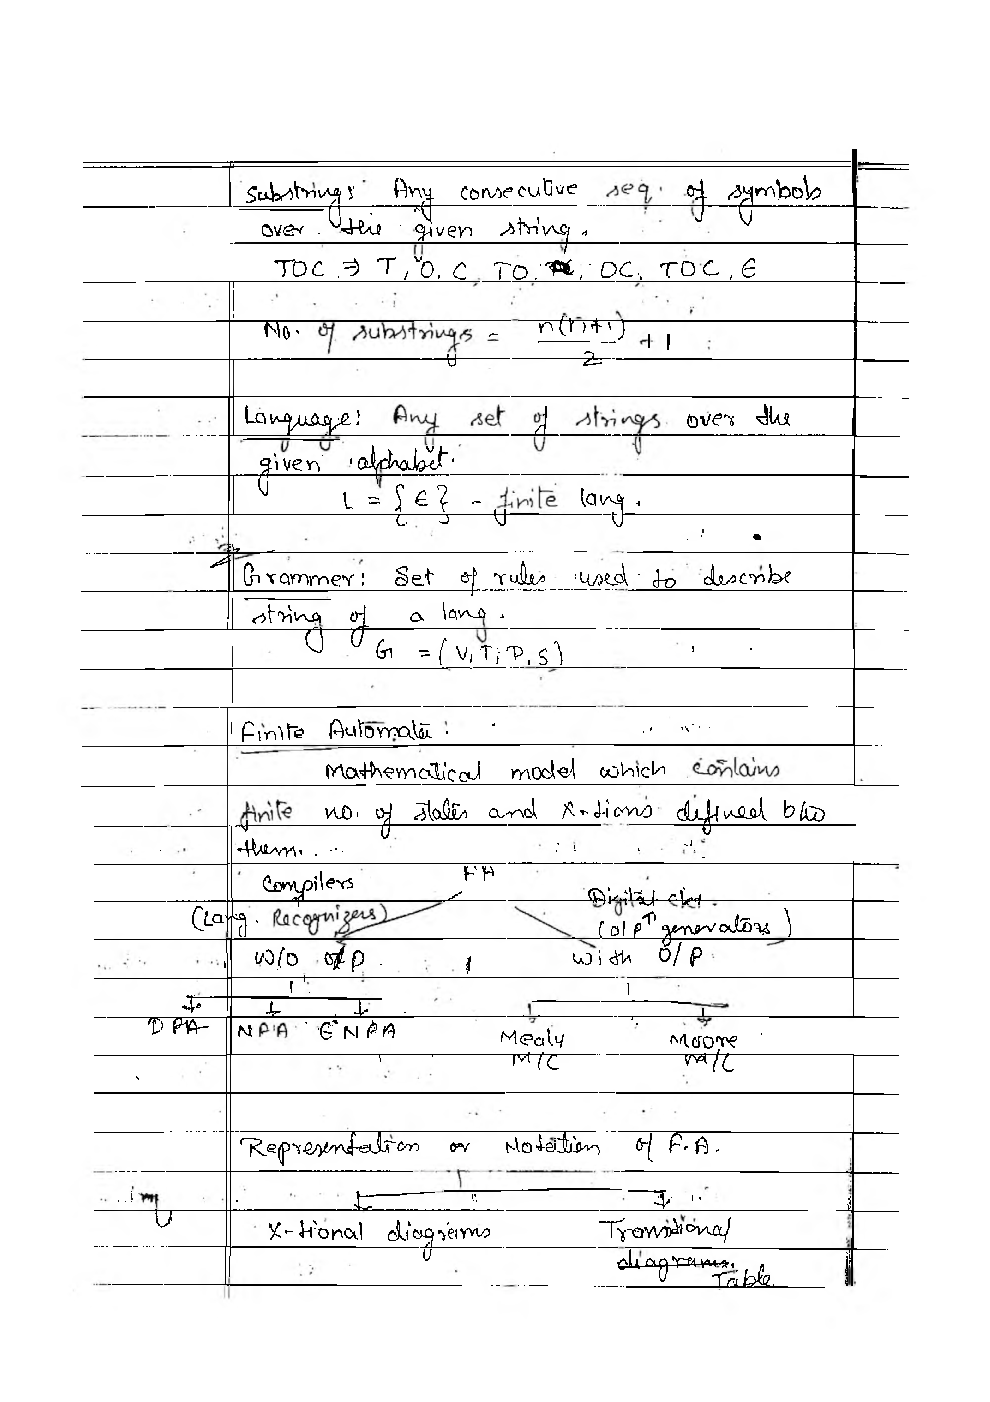 Substring: Any consecutive seq. of symbols
over the given string.
TOC ⇒ T, O, C, TO, OC, TOC, ε
No. of substrings = n(n+1)/2 + 1
Language: Any set of strings over the
given alphabet.
L = { ε } - finite lang.
Grammer: Set of rules used to describe
string of a lang.
G = (V, T, P, S)
Finite Automata:
Mathematical model which contains
finite no. of states and X-tions defined b/w
them.
FA
Compilers
(Lang. Recognizers)
W/O O/P
Digital ckt.
(O/P generators)
With O/P
DFA NFA ε NFA
Mealy M/C
Moore M/C
Representation or Notation of F.A.
Imp
X-tional diagrams
Transitional
diagrams.
Table